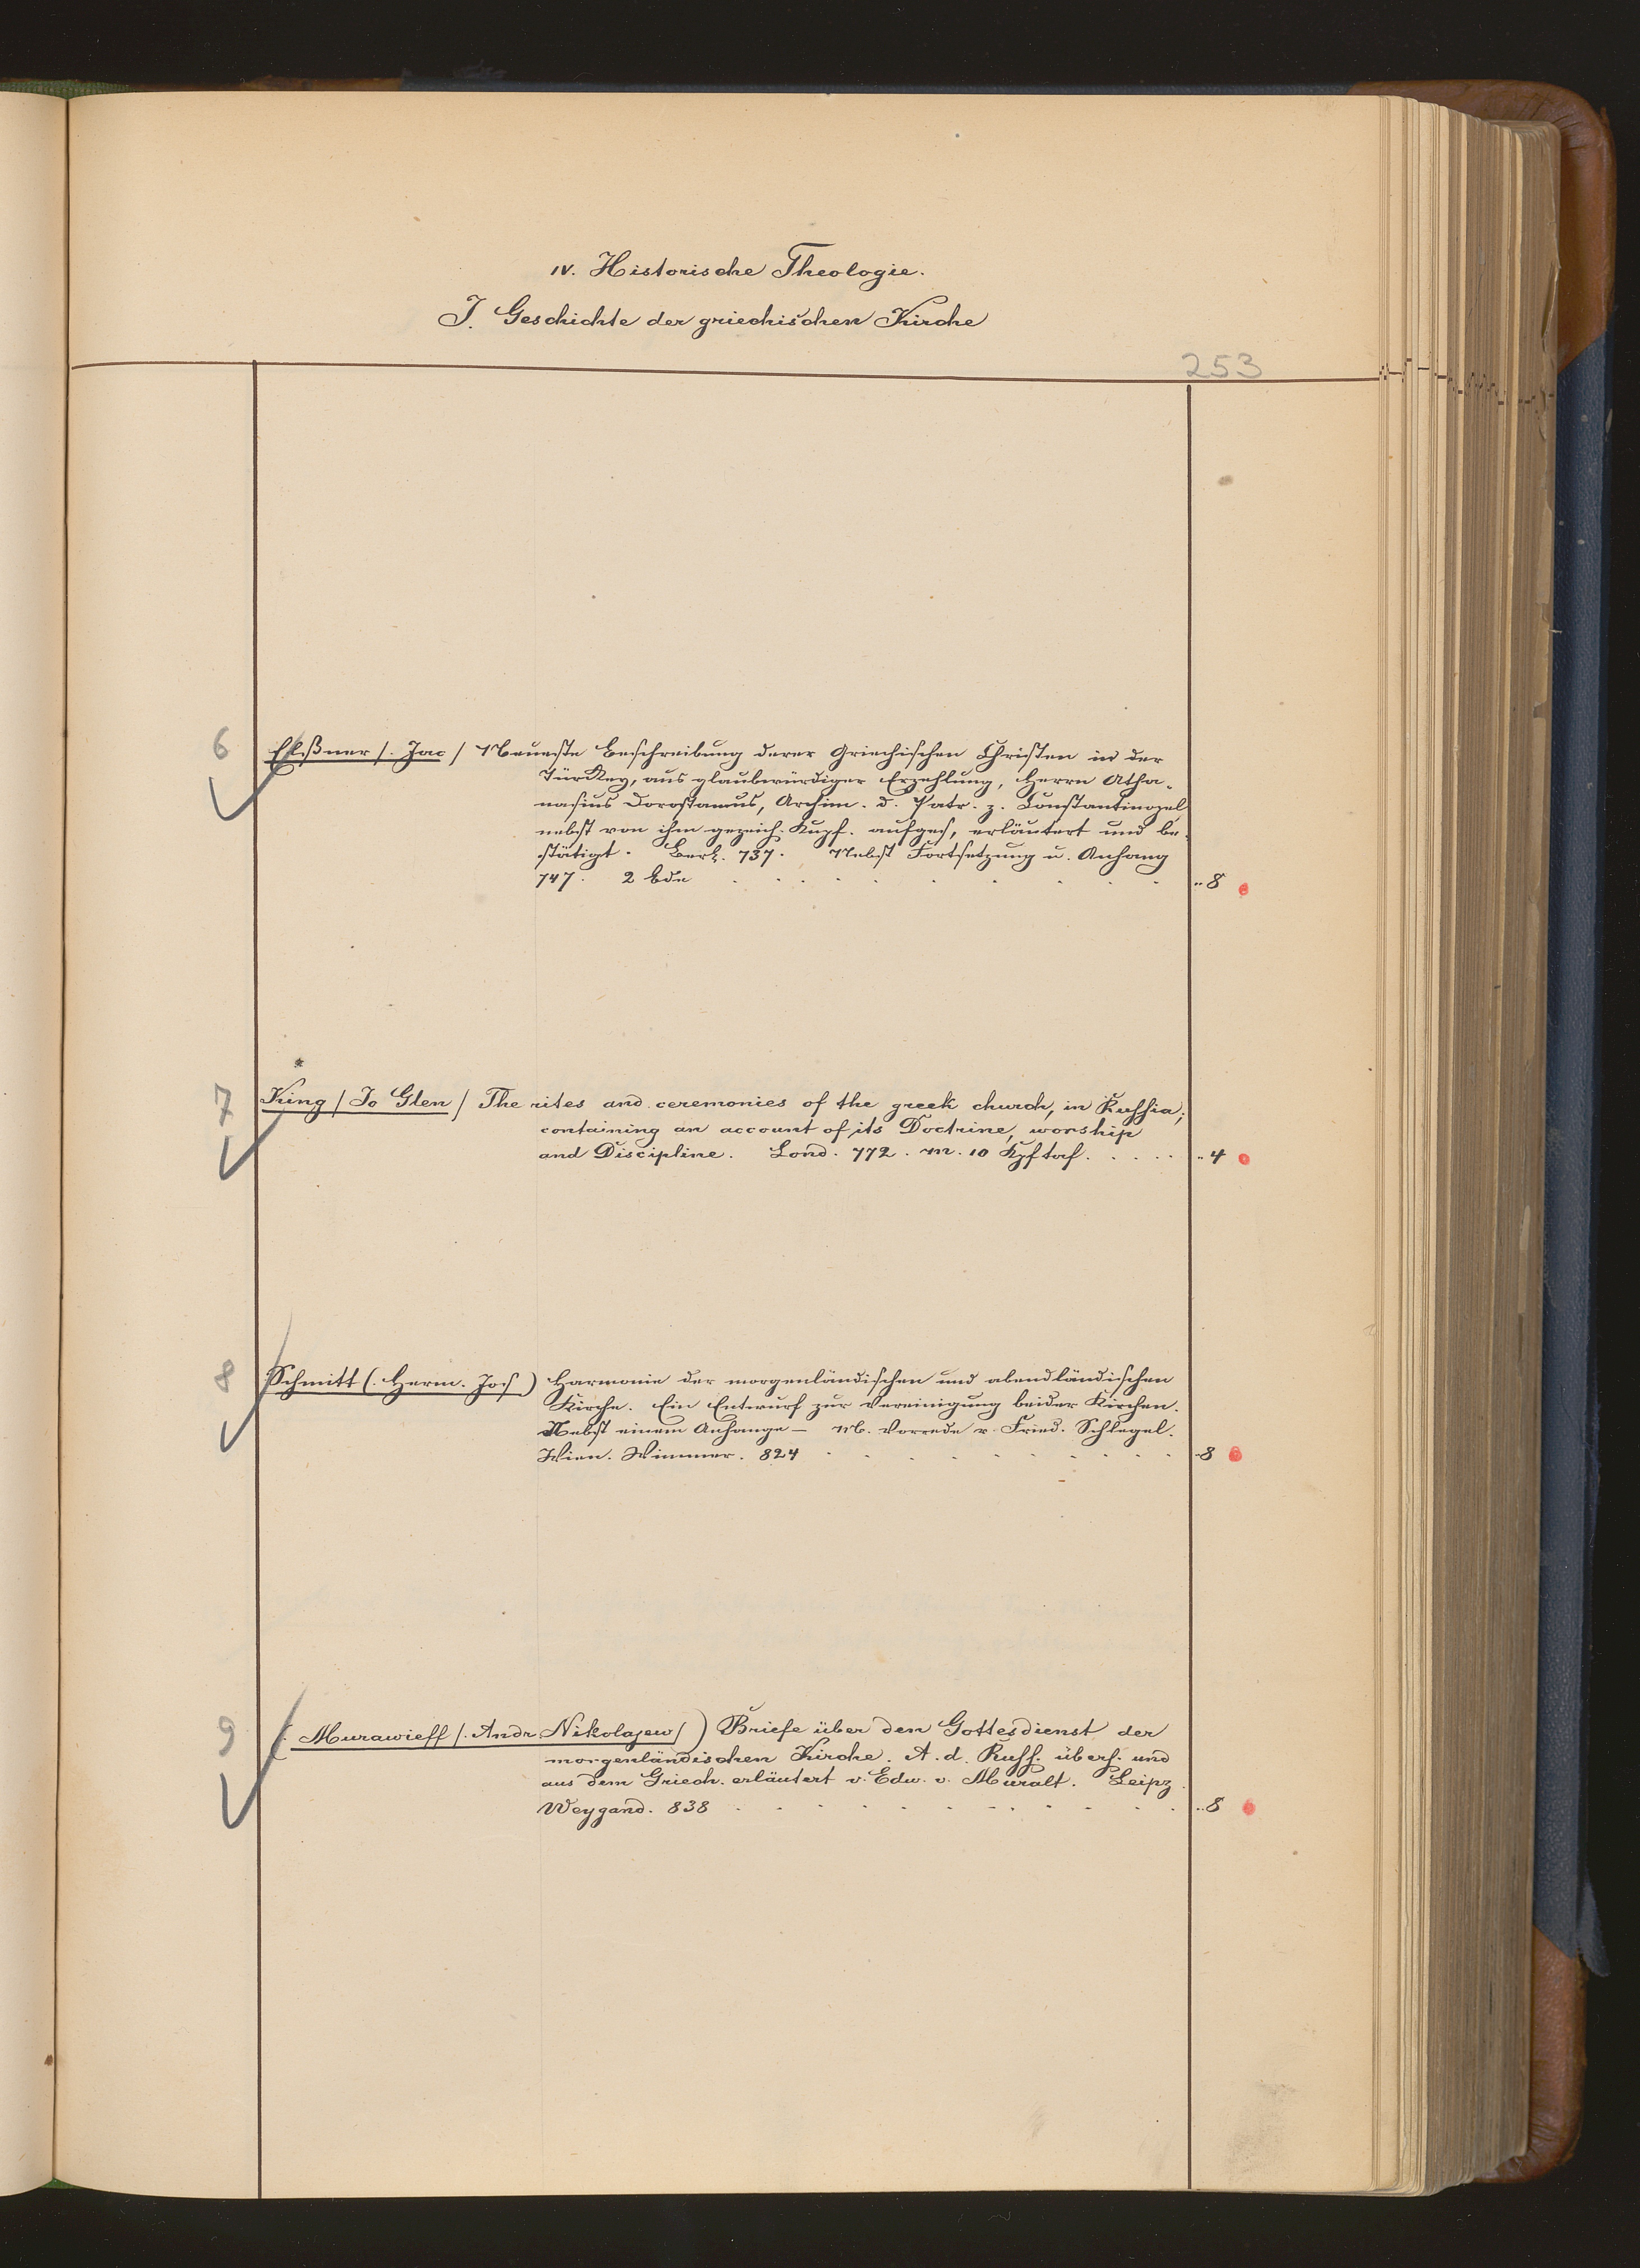 IV. Historische Theologie.
J. Geschichte der griechischen Kirche
253
6 Elßner /. Jac / Neueste Beschreibung derer Griechischen Christen in der
Türckey, aus glaubwürdiger Erzehlung, Herrn Atha-
nasius Dorostamus, Archim. d. Patr. z. Constantinopel
nebst von ihm gezeich. Kupf. aufges, erläutert und be-
stätigt. Berl. 737. Nebst Fortsetzung u. Anhang
747. 2 Bde . . . . . . . . . . 8
7 King / Jo Glen / The rites and ceremonies of the greek church, in Russia;
containing an account of its Doctrine, worship
and Discipline. Lond. 772. m. 10 Kpftaf. . . . . 4
8 Schmitt (. Herm. Jos.) Harmonie der morgenländischen und abendländischen
Kirche. Ein Entwurf zur Vereinigung beider Kirchen.
Nebst einem Anhange – M. Vorrede v. Fried. Schlegel.
Wien. Wimmer. 824 . . . . . . . . . 8
9 (. Murawieff /. Andr Nikolajew / ) Briefe über den Gottesdienst der
morgenländischen Kirche. A. d. Russ. übers. und
aus dem Griech. erläutert v. Edw. v. Muralt. Leipz.
Weygand. 838 . . . . . . . . . . 8